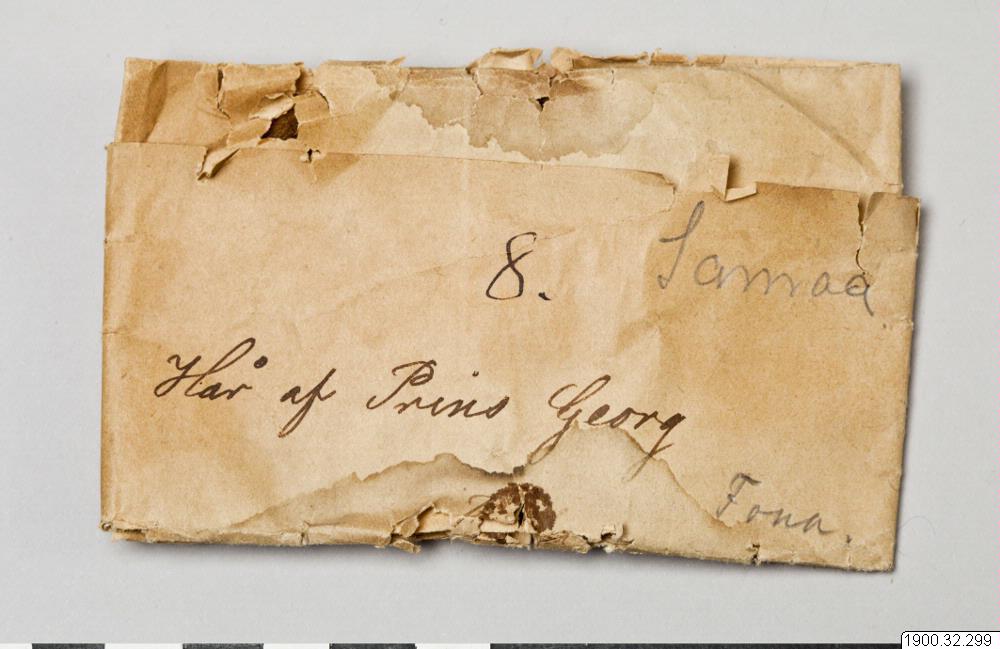 8.
Samoa.
Hår af Prins Georg
Tona.
1900.32.299